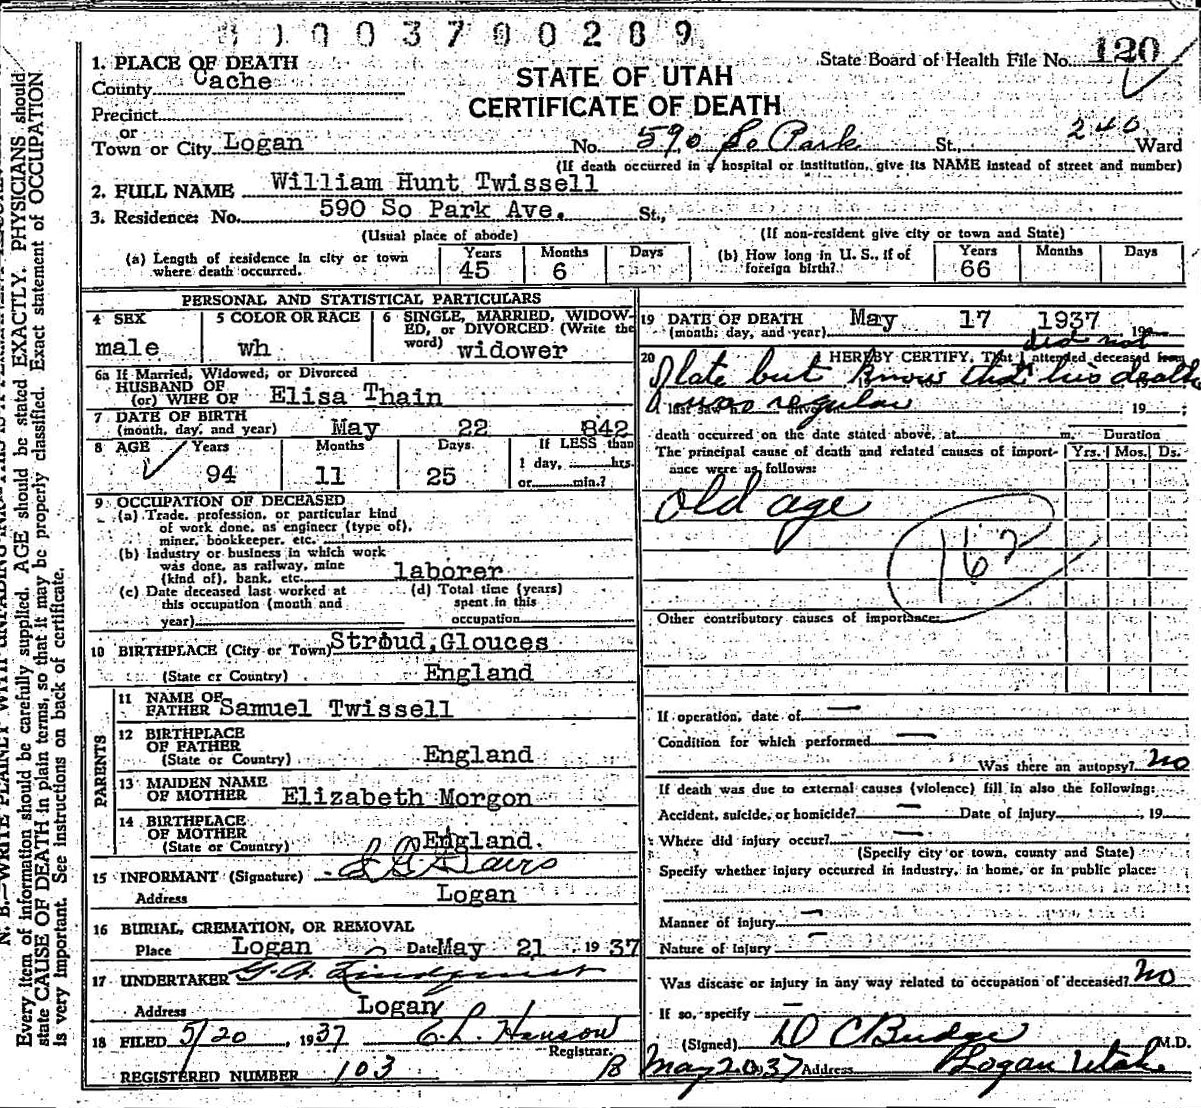 0003700289
State Board of Health File No. 120
1. PLACE OF DEATH
County Cache
STATE OF UTAH
CERTIFICATE OF DEATH
Precinct
or
Town or City Logan No. 590 So Park St., 240 Ward
(If death occurred in a hospital or institution, give its NAME instead of street and number)
2. FULL NAME William Hunt Twissell
3. Residence: No. 590 So Park Ave. St.,
(Usual place of abode) (If non-resident give city or town and State)
(a) Length of residence in city or town where death occurred. Years 45 Months 6 Days
(b) How long in U. S., if of foreign birth? Years 66 Months Days
PERSONAL AND STATISTICAL PARTICULARS
4 SEX male
5 COLOR OR RACE wh
6 SINGLE, MARRIED, WIDOWED, or DIVORCED (Write the word) widower
6a If Married, Widowed, or Divorced
HUSBAND OF
(or) WIFE OF Elisa Thain
7 DATE OF BIRTH
(month, day, and year) May 22 842
8 AGE Years 94 Months 11 Days 25
If LESS than
1 day, hrs.
or min.?
9 OCCUPATION OF DECEASED
(a) Trade, profession, or particular kind
of work done, as engineer (type of),
miner, bookkeeper, etc.
(b) Industry or business in which work
was done, as railway, mine
(kind of), bank, etc. laborer
(c) Date deceased last worked at
this occupation (month and
year)
(d) Total time (years)
spent in this
occupation
10 BIRTHPLACE (City or Town) Stroud, Glouces
(State or Country) England
PARENTS
11 NAME OF
FATHER Samuel Twissell
12 BIRTHPLACE
OF FATHER
(State or Country) England
13 MAIDEN NAME
OF MOTHER Elizabeth Morgon
14 BIRTHPLACE
OF MOTHER
(State or Country) England.
15 INFORMANT (Signature) Davis
Address Logan
16 BURIAL, CREMATION, OR REMOVAL
Place Logan Date May 21, 1937
17 UNDERTAKER G. A. Lindquist
Address Logan
18 FILED 5/20, 1937 E. L. Hanson
Registrar.
REGISTERED NUMBER 103 B
19 DATE OF DEATH
(month, day, and year) May 17 1937 19
did not
20 I HEREBY CERTIFY, That I attended deceased from
late but know that his death
was regular
I last saw h alive 19 ;
death occurred on the date stated above, at m.
The principal cause of death and related causes of importance were as follows:
Duration
Yrs. Mos. Ds.
old age
162
Other contributory causes of importance:
If operation, date of —
Condition for which performed —
Was there an autopsy? no
If death was due to external causes (violence) fill in also the following:
Accident, suicide, or homicide? — Date of injury , 19
Where did injury occur? —
(Specify city or town, county and State)
Specify whether injury occurred in industry, in home, or in public place:
Manner of injury —
Nature of injury —
Was disease or injury in any way related to occupation of deceased? no
If so, specify —
(Signed) D C Budge M.D.
May 20, 37 Address Logan Utah
N. B.—WRITE PLAINLY WITH UNFADING INK—THIS IS A PERMANENT RECORD
Every item of information should be carefully supplied. AGE should be stated EXACTLY. PHYSICIANS should
state CAUSE OF DEATH in plain terms, so that it may be properly classified. Exact statement of OCCUPATION
is very important. See instructions on back of certificate.